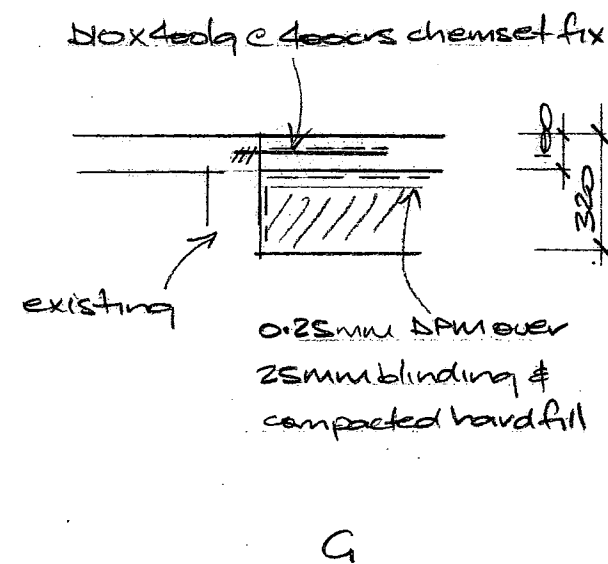 D10 x 400lg @ 400crs chemset fix
100
320
existing
0.25mm DPM over
25mm blinding &
compacted hardfill
G